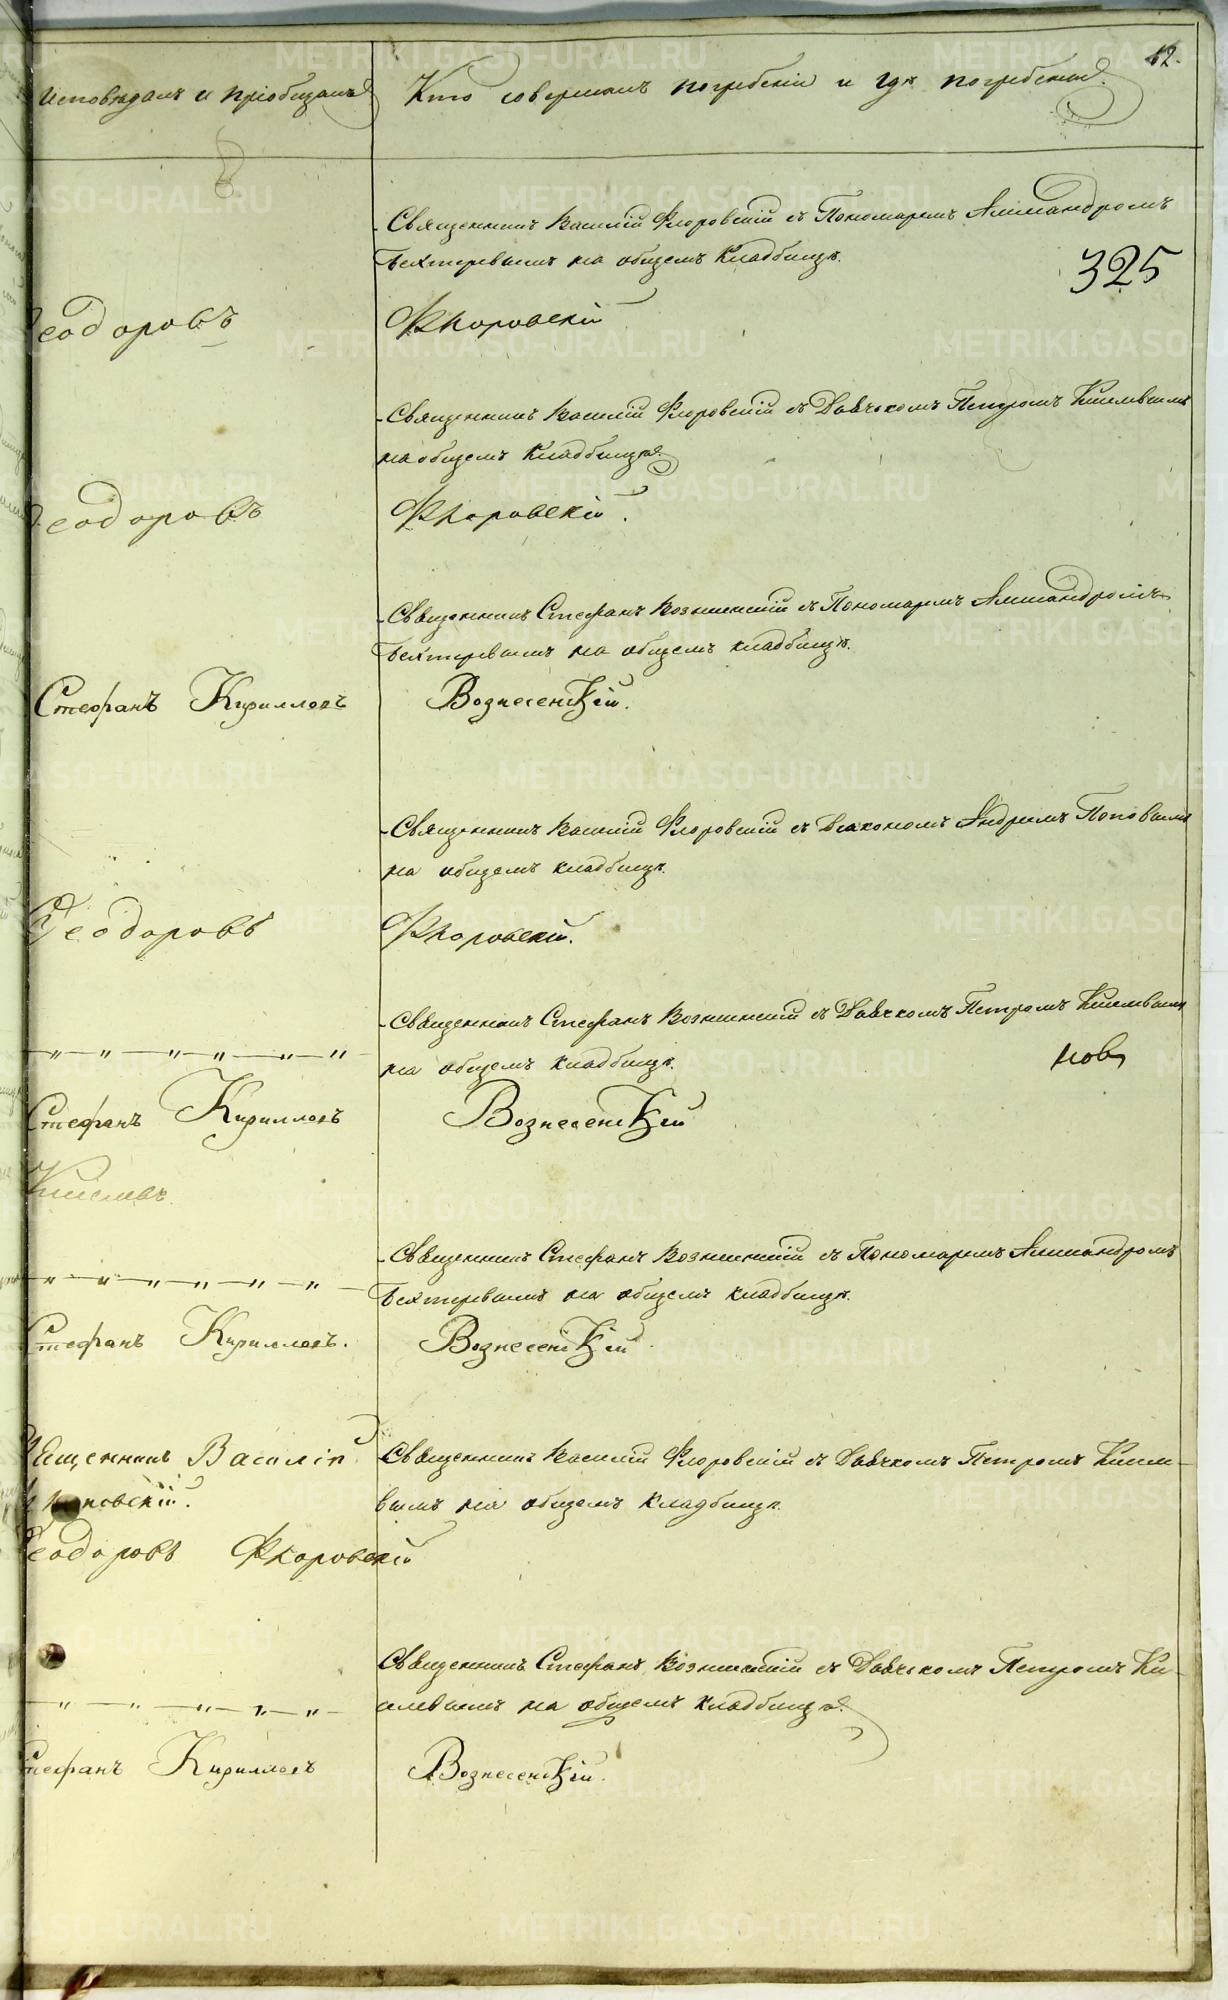 12.
исповѣдалъ и пріобщалъ
Кто совершалъ погребеніе и гдѣ погребены.
Священникъ Василій Флоровскій съ Пономаремъ Александромъ
Бехтеревымъ на общемъ кладбищѣ.
325
Ѳеодоровъ
Флоровскій
Священникъ Василій Флоровскій съ Дьячкомъ Петромъ Киселевымъ
на общемъ кладбищѣ.
Ѳеодоровъ
Флоровскій.
Священникъ Стефанъ Вознесенскій съ Пономаремъ Александромъ
Бехтеревымъ на общемъ кладбищѣ.
Стефанъ Кирилловъ
Вознесенскій.
Священникъ Василій Флоровскій съ Діакономъ Андреемъ Поповымъ
на общемъ кладбищѣ.
Ѳеодоровъ
Флоровскій.
Священникъ Стефанъ Вознесенскій съ Дьячкомъ Петромъ Киселевымъ
на общемъ кладбищѣ.
Стефанъ Кирилловъ
Вознесенскій
Киселевъ.
Священникъ Стефанъ Вознесенскій съ Пономаремъ Александромъ
Бехтеревымъ на общемъ кладбищѣ.
Стефанъ Кирилловъ.
Вознесенскій
Священникъ Василій
Флоровскій.
Священникъ Василій Флоровскій съ Дьячкомъ Петромъ Кисел-
евымъ на общемъ кладбищѣ.
Ѳеодоровъ Флоровскій
Священникъ Стефанъ Вознесенскій съ Дьячкомъ Петромъ Ки-
селевымъ на общемъ кладбищѣ.
Стефанъ Кирилловъ
Вознесенскій.
METRIKI.GASO-URAL.RU